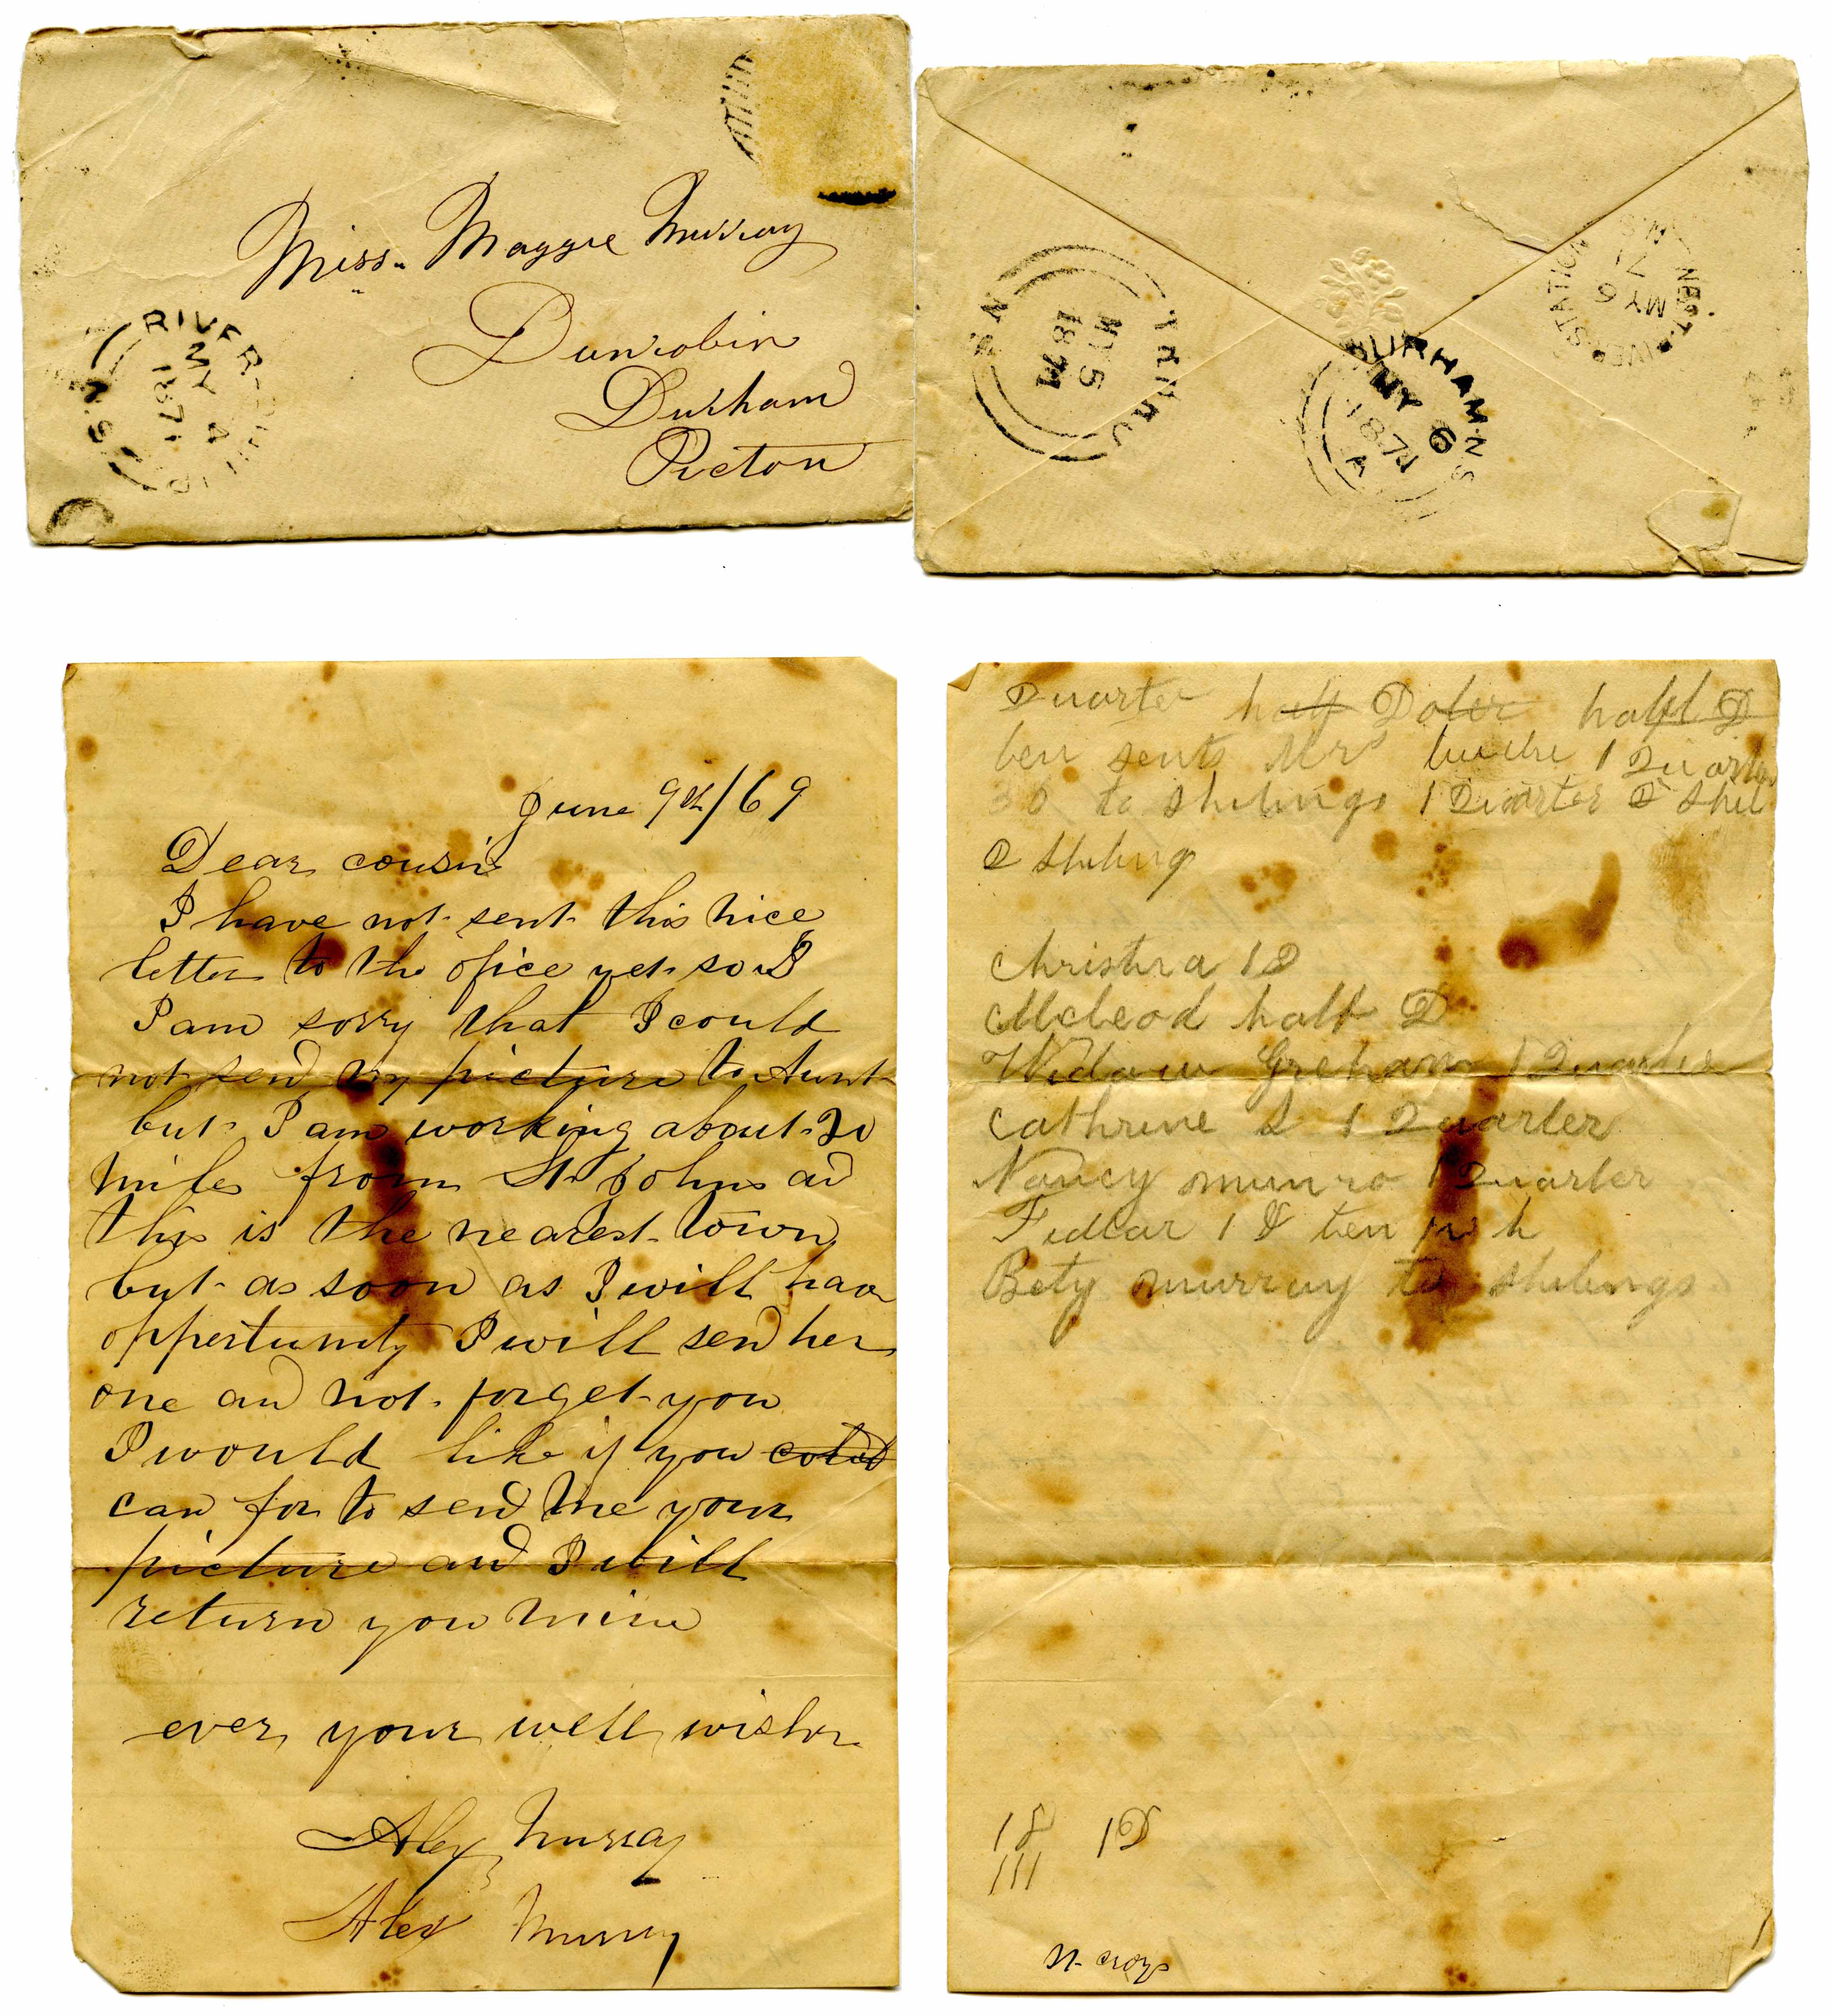 Miss. Maggie Murray
Dunrobin
Durham
Picton
RIVER
MY 4
1871
N.S
TRURO
MY 5
1871
N
DURHAM N S
MY 6
1871
A
STATION
N.S
MY 6
71
June 9th/69
Dear cousin
I have not sent this nice
letter to the ofice yet so
I am sorry that I could
not send my picture to Aunt
but I am working about 20
miles from St Johns and
this is the nearest town
but as soon as I will have
oppertunity I will send her
one and not forget you
I would like if you could
can for to send me your
picture and I will
return you mine
ever your well wisher
Alex Murray
Alex Murray
Quarter half Doler half D
ten sents Mrs 1 Quarter
to shilings 1 Quarter 2 shil
2 shiling
Christina 1 D
McLeod half D
Widow Greham 1 Quarter
Cathrine 1 Quarter
Nancy munro 1 Quarter
1 ten
Bety murray to shilings
1 D
111